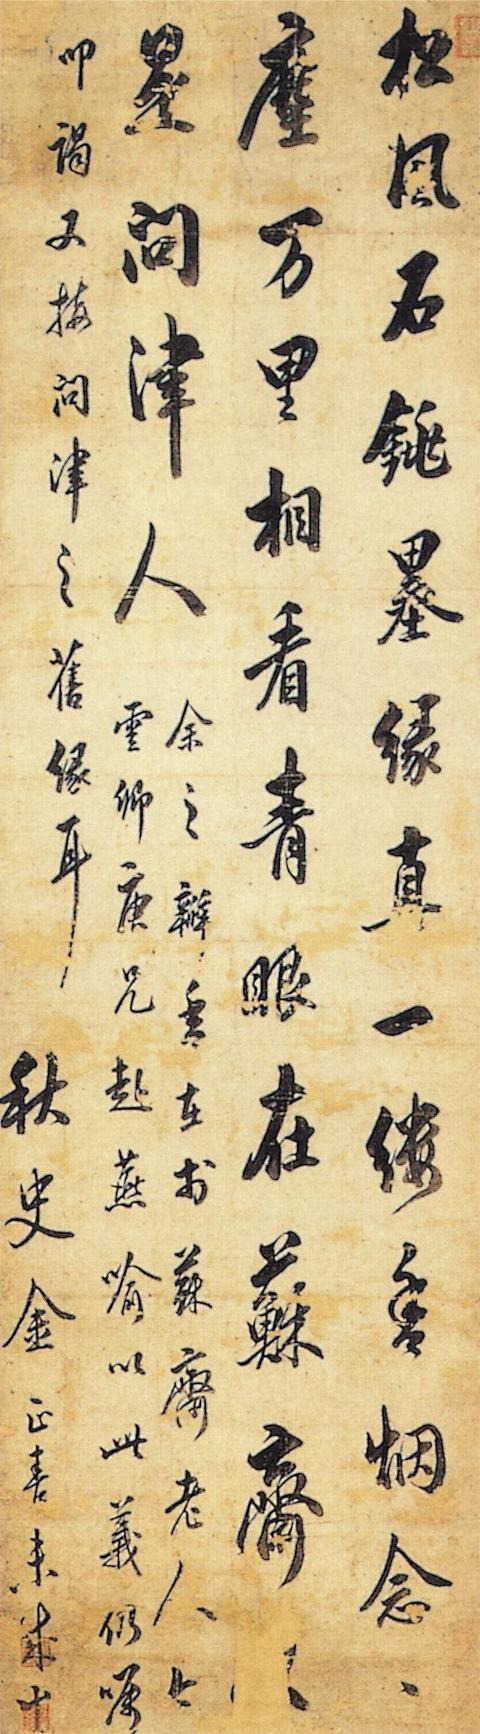 松風石銚墨緣真一縷香烟念〻
塵万里相看青眼在蘇齋
是問津人
余之瓣香在於蘇齋老人今
雲卿庚兄赴燕喻以此義仍囑
叩謁又接問津之舊緣耳
秋史金正喜